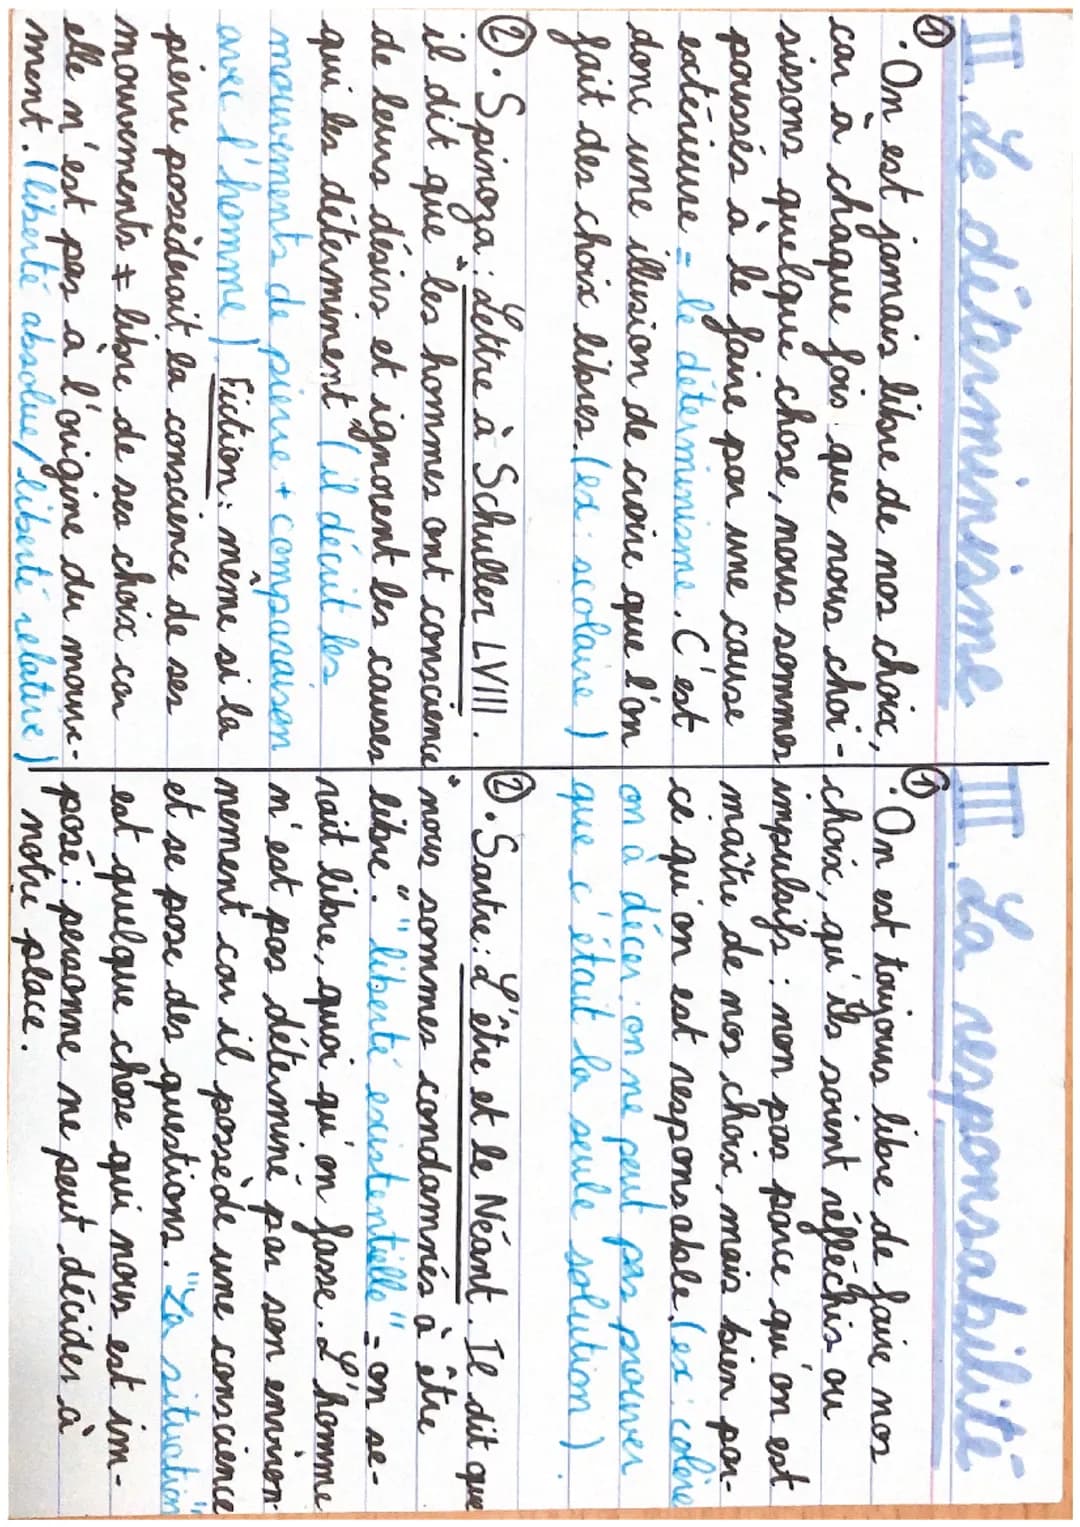 II. Le déterminisme.
①
• On est jamais libre de nos choix,
car à chaque fois que nous choi-
sissons quelque chose, nous sommes
poussés à le faire par une cause
extérieure = le déterminisme. C'est
donc une illusion de croire que l'on
fait des choix libres. (ex: scolaire)
② • Spinoza : Lettre à Schuller LVIII.
il dit que "les hommes ont conscience
de leurs désirs et ignorent les causes
qui les déterminent" (il décrit les
mouvements de pierre + comparaison
avec l'homme). Fiction : même si la
pierre possèderait la conscience de ses
mouvements ≠ libre de ses choix car
elle n'est pas à l'origine du mouve-
ment. (liberté absolue/liberté relative)
III. La responsabilité
①
• On est toujours libre de faire nos
choix, qu'ils soient réfléchis ou
impulsifs : non pas parce qu'on est
maître de nos choix, mais bien par-
ce qu'on est responsable. (ex: colère
on a décer: on ne peut pas prouver
que c'était la seule solution).
② • Sartre : L'être et le Néant. Il dit que
"nous sommes condamnés à être
libre". "liberté existentielle" = on se-
rait libre, quoi qu'on fasse. L'homme
n'est pas déterminé par son environ-
nement car il possède une conscience
et se pose des questions. "La situation"
est quelque chose qui nous est im-
posé : personne ne peut décider à
notre place.